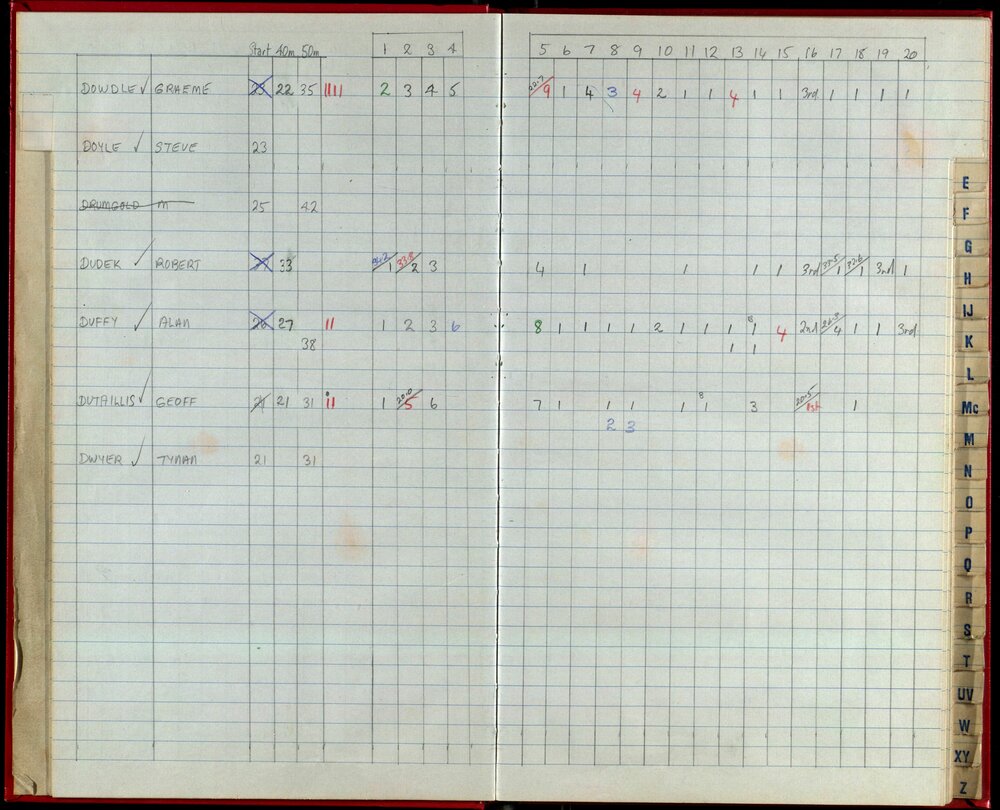 Start 40m 50m 1 2 3 4 5 6 7 8 9 10 11 12 13 14 15 16 17 18 19 20
DOWDLE ✓ GRAEME 22 35 2 3 4 5 22.7 9 1 4 3 4 2 1 1 4 1 1 3rd 1 1 1 1
DOYLE ✓ STEVE 23
DRUMGOLD M 25 42
DUDEK ✓ ROBERT 33 1 33.8 2 3 4 1 1 1 1 3rd 1 22.6 1 3rd 1
DUFFY ✓ ALAN 26 27 11 1 2 3 6 8 1 1 1 1 2 1 1 1 8 1 4 2nd 4 1 1 3rd
38 1 1
DUTAILLIS ✓ GEOFF 21 31 11 1 20.0 5 6 7 1 1 1 1 8 1 3 20.5 1st 1
2 3
DWYER ✓ TYNAN 21 31
E
F
G
H
IJ
K
L
Mc
M
N
O
P
Q
R
S
T
UV
W
XY
Z